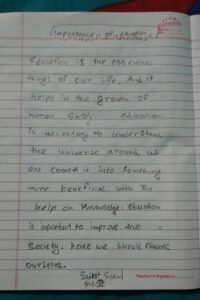 Importance of education
Education is the essential
things of our life. And it
helps in the growth of
human education
Is necessary to understand
the universe around us
and convert it into something
more beneficial with the
help on Knowledge. Education
is important to improve the
Society. hence we should educate
ourselves.
Teacher's Signature